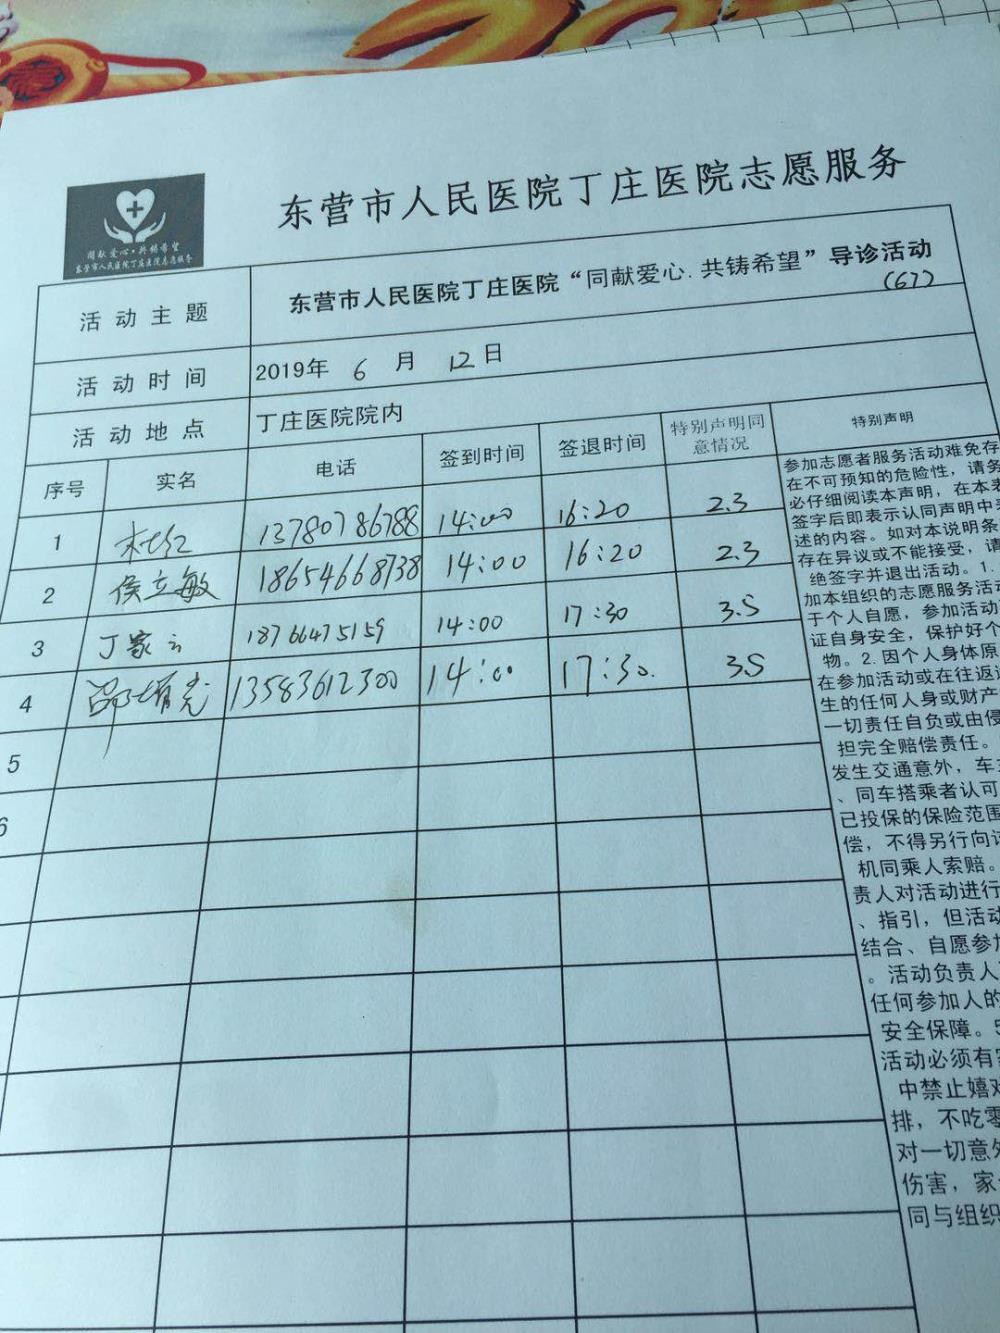 东营市人民医院丁庄医院志愿服务
同献爱心·共铸希望
东营市人民医院丁庄医院志愿服务
活动主题 东营市人民医院丁庄医院“同献爱心.共铸希望”导诊活动
(67)
活动时间 2019年 6 月 12 日
活动地点 丁庄医院院内
序号 实名 电话 签到时间 签退时间 特别声明同意情况 特别声明
1 杜红 13780786788 14:00 16:20 2.3
2 侯立敏 18654668738 14:00 16:20 2.3
3 丁家云 18766475159 14:00 17:30 3.5
4 邵 13583612300 14:00 17:30. 35
5
6
参加志愿者服务活动难免存
在不可预知的危险性，请务
必仔细阅读本声明，在本表
签字后即表示认同声明中
述的内容。如对本说明条
存在异议或不能接受，请
绝签字并退出活动。1.
加本组织的志愿服务活动
于个人自愿，参加活动
证自身安全，保护好个
物。2.因个人身体原
在参加活动或在往返途
生的任何人身或财产
一切责任自负或由侵
担完全赔偿责任。
发生交通意外，车
、同车搭乘者认可
已投保的保险范围
偿，不得另行向
机同乘人索赔。
责人对活动进行
、指引，但活动
结合、自愿参加
。活动负责人
任何参加人的
安全保障。5
活动必须有
中禁止嬉戏
排，不吃零
对一切意外
伤害，家
同与组织